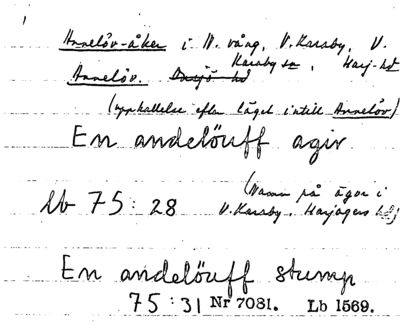 Annelöv-åker i N. vång, V. Karaby, V.
Karaby sn, Harj-hd
Annelöv. Onsjö hd
(uppkallelse efter läget intill Annelöv)
En andelöuff agir
(Namn på ägor i
Lb 75:28 V. Karaby, Harjagers hd)
En andelöuff stump
75:31 Nr 7031. Lb 1569.